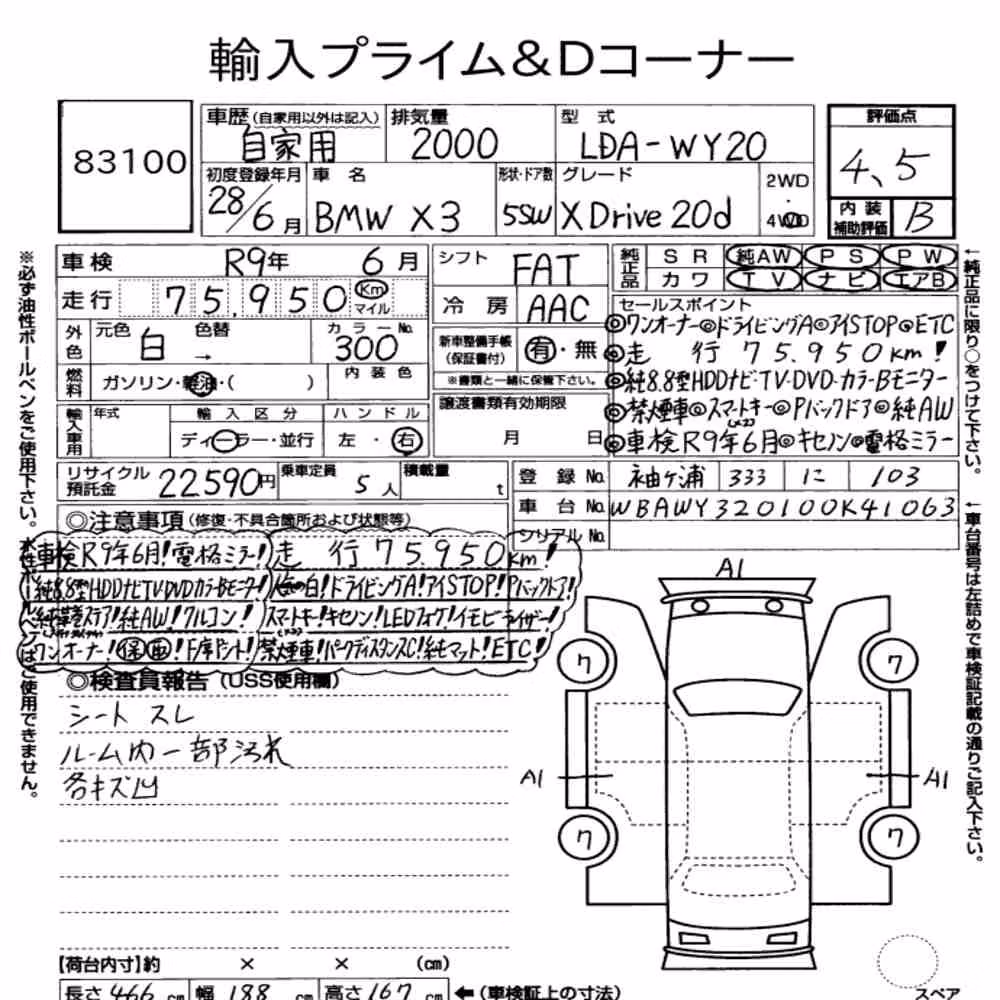 輸入プライム&Dコーナー
83100
車歴 (自家用以外は記入) 自家用
排気量 2000
型式 LDA-WY20
評価点 4、5
初度登録年月 28/6月
車名 BMW X3
形状・ドア数 5SW
グレード X Drive 20d
2WD・4WD
内装補助評価 B
車検 R9年 6月
シフト FAT
純正品 SR 純AW PS PW
カワ TV ナビ エアB
走行 75,950 Km マイル
冷房 AAC
セールスポイント
◎ワンオーナー◎ドライビングA◎アイSTOP◎ETC
◎走 行 75.950km!
◎純8.8型HDDナビ・TV・DVD・カラーBモニター
◎禁煙車◎スマートキー◎Pバックドア◎純AW
◎車検R9年6月◎キセノン◎電格ミラー
外色 元色 白 色替 →
カラーNo. 300
新車整備手帳(保証書付) 有・無
※書類と一緒に保管下さい。
燃料 ガソリン・軽油・( )
内装色
譲渡書類有効期限
月 日
輸入車用 年式
輸入区分 ディーラー・並行
ハンドル 左・右
リサイクル預託金 22590円
乗車定員 5人
積載量 t
登録No. 袖ヶ浦 333 に 103
車台No. WBAWY320100K41063
シリアルNo.
◎注意事項 (修復・不具合箇所および状態等)
車検R9年6月!電格ミラー!走 行 75.950km!
純8.8型HDDナビTVDVDカラーBモニター!人気の白!ドライビングA!アイSTOP!Pバックドア!
純革巻ステア!純AW!クルコン!スマートキー!キセノン!LEDフォグ!イモビライザー!
ワンオーナー!保書!F席シート!禁煙車!パークディスタンスC!純マット!ETC!
◎検査員報告 (USS使用欄)
シート スレ
ルーム内一部汚れ
各キズ凹
A1
ワ
ワ
A1
A1
ワ
ワ
【荷台内寸】約 × × (cm)
長さ 466 cm 幅 188 cm 高さ 167 cm ←(車検証上の寸法)
スペア
※必ず油性ボールペンをご使用下さい。水性ボールペンはご使用できません。
←純正品に限り○をつけて下さい。
←車台番号は左詰めで車検証記載の通りご記入下さい。